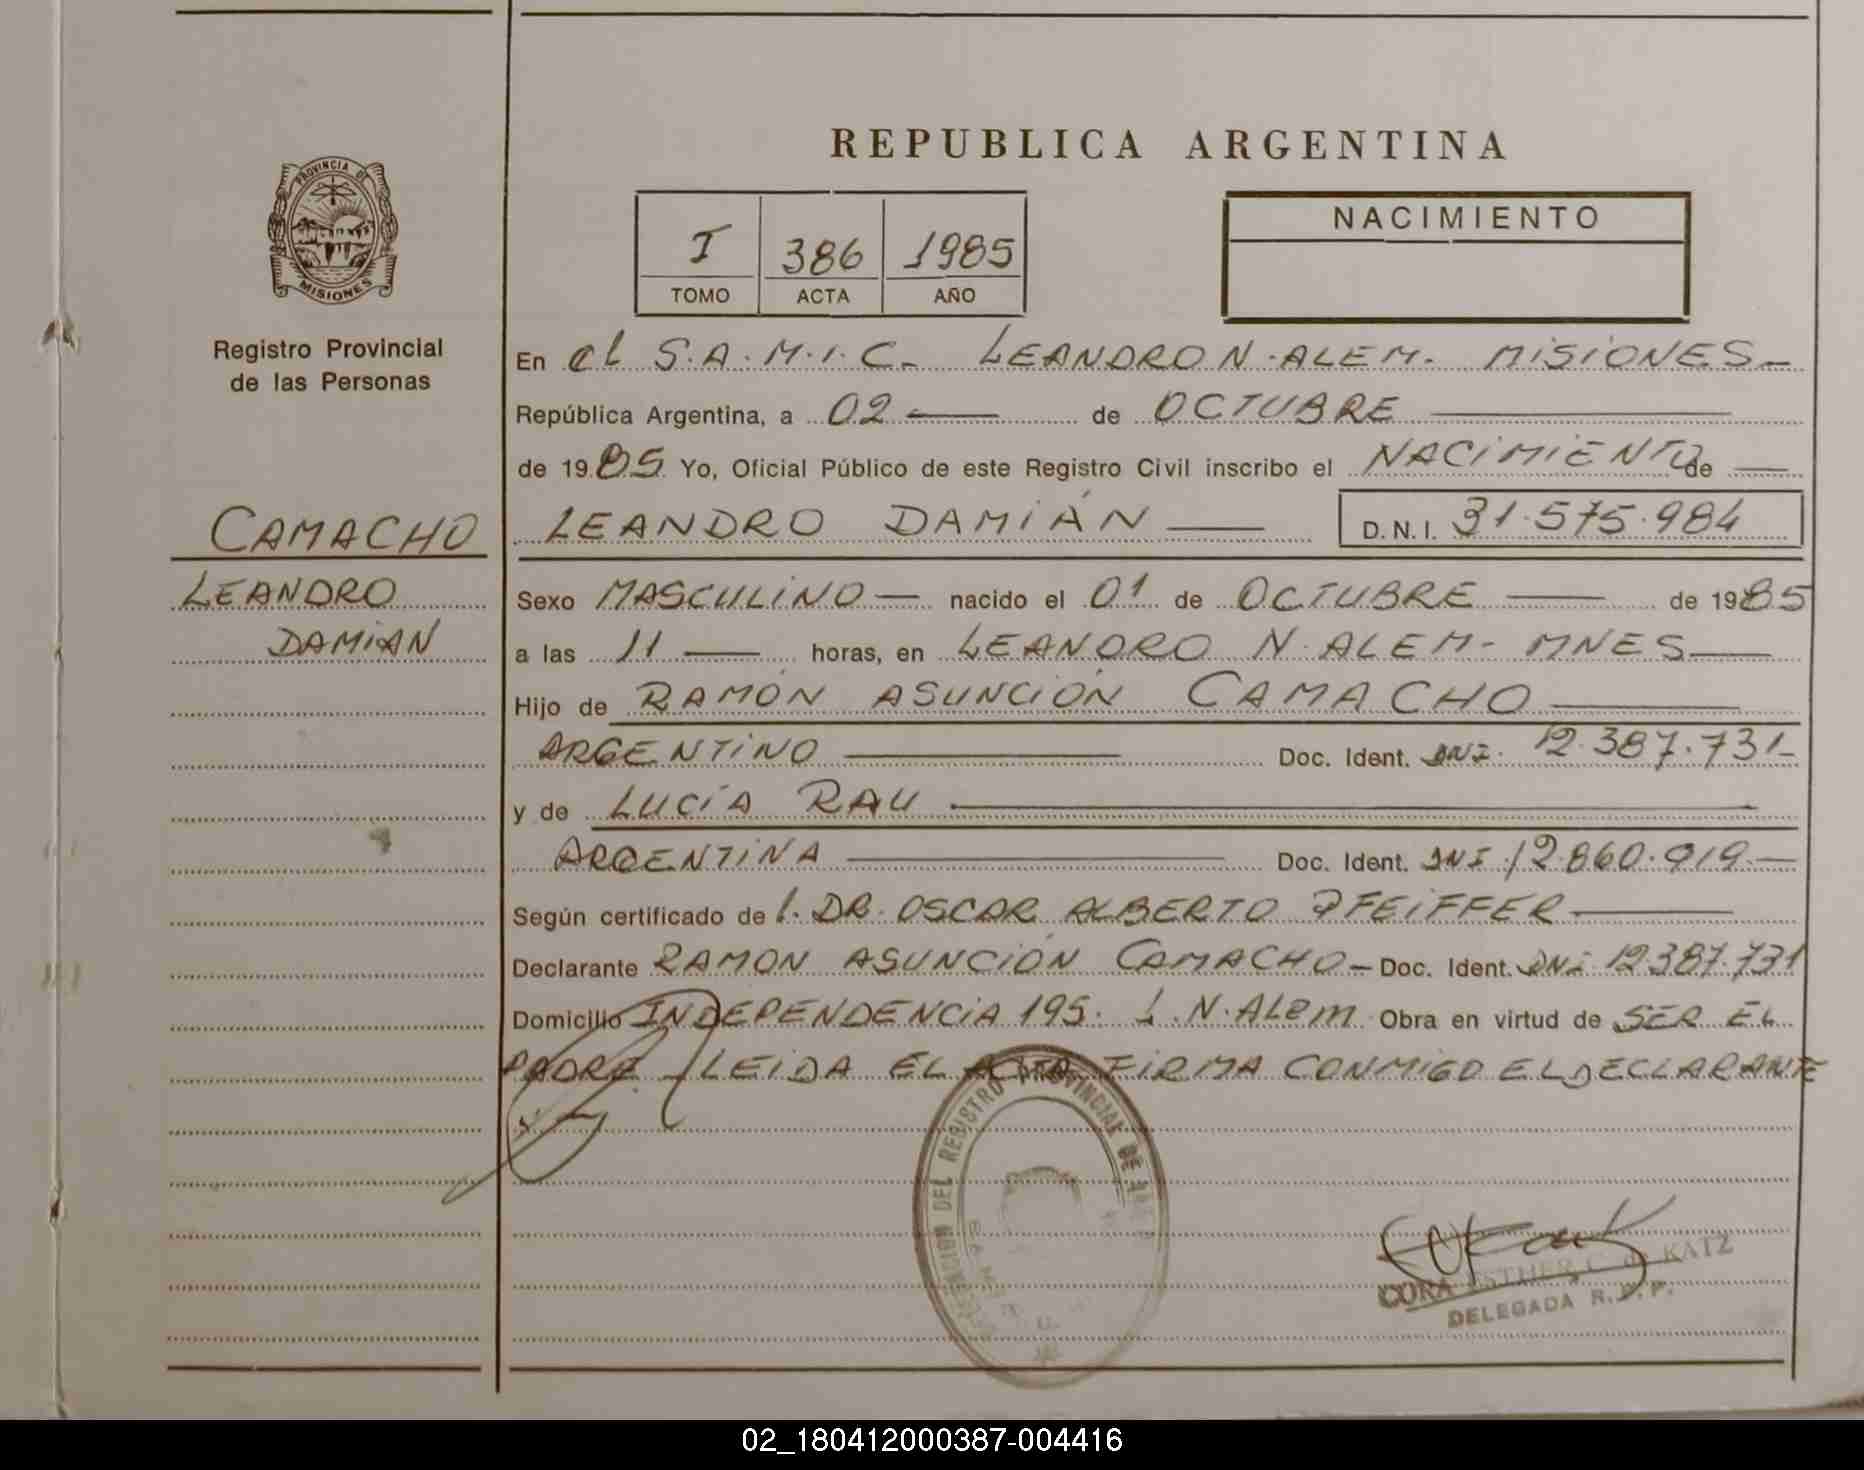 REPUBLICA ARGENTINA
PROVINCIA DE
MISIONES
Registro Provincial
de las Personas
I 386 1985
TOMO ACTA AÑO
NACIMIENTO
En el S.A.M.I.C. LEANDRO N. ALEM. MISIONES
República Argentina, a 02 de OCTUBRE
de 1985 Yo, Oficial Público de este Registro Civil inscribo el NACIMIENTO de
CAMACHO
LEANDRO
DAMIAN
LEANDRO DAMIÁN D.N.I. 31.575.984
Sexo MASCULINO nacido el 01 de OCTUBRE de 1985
a las 11 horas, en LEANDRO N. ALEM- MNES
Hijo de RAMÓN ASUNCIÓN CAMACHO
ARGENTINO Doc. Ident. DNI. 12.387.731
y de LUCÍA RAU
ARGENTINA Doc. Ident. DNI 12.860.919
Según certificado de l. DR. OSCAR ALBERTO PFEIFFER
Declarante RAMON ASUNCIÓN CAMACHO Doc. Ident. DNI 12387.731
Domicilio INDEPENDENCIA 195. L.N. ALEM Obra en virtud de SER EL
PADRE LEIDA EL ACTA FIRMA CONMIGO EL DECLARANTE
DEL REGISTRO PROVINCIAL DE
CORA ESTHER C. de KATZ
DELEGADA R.P.P.
02_180412000387-004416